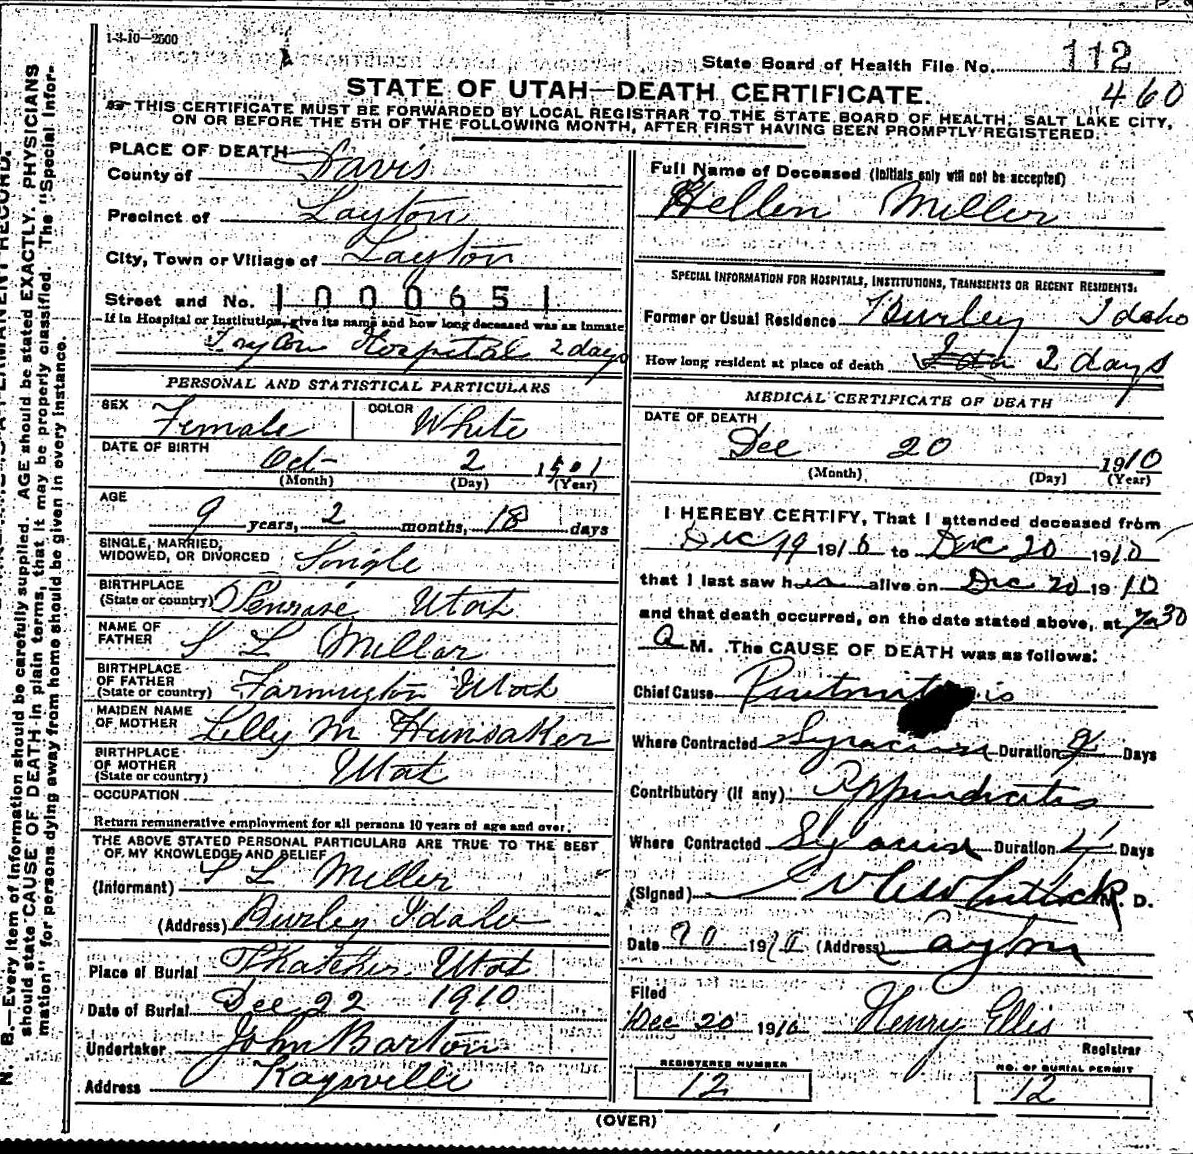 1-3-10-2500
State Board of Health File No. 112
460
STATE OF UTAH—DEATH CERTIFICATE.
THIS CERTIFICATE MUST BE FORWARDED BY LOCAL REGISTRAR TO THE STATE BOARD OF HEALTH, SALT LAKE CITY,
ON OR BEFORE THE 5TH OF THE FOLLOWING MONTH, AFTER FIRST HAVING BEEN PROMPTLY REGISTERED.
PLACE OF DEATH
County of Davis
Precinct of Layton
City, Town or Village of Layton
Street and No. 1000651
If in Hospital or Institution, give its name and how long deceased was an inmate
Hospital 2 days
PERSONAL AND STATISTICAL PARTICULARS
SEX Female COLOR White
DATE OF BIRTH Oct 2 1901
(Month) (Day) (Year)
AGE
9 years, 2 months, 18 days
SINGLE, MARRIED,
WIDOWED, OR DIVORCED Single
BIRTHPLACE
(State or country) Penrose Utah
NAME OF
FATHER S L Miller
BIRTHPLACE
OF FATHER
(State or country) Farmington Utah
MAIDEN NAME
OF MOTHER Lilly M Hunsaker
BIRTHPLACE
OF MOTHER
(State or country) Utah
OCCUPATION
Return remunerative employment for all persons 10 years of age and over.
THE ABOVE STATED PERSONAL PARTICULARS ARE TRUE TO THE BEST
OF MY KNOWLEDGE AND BELIEF
(Informant) S L Miller
(Address) Burley Idaho
Place of Burial Utah
Date of Burial Dec 22 1910
Undertaker John Barton
Address Kaysville
Full Name of Deceased (Initials only will not be accepted)
Hellen Miller
SPECIAL INFORMATION FOR HOSPITALS, INSTITUTIONS, TRANSIENTS OR RECENT RESIDENTS.
Former or Usual Residence Burley Idaho
How long resident at place of death 2 days
MEDICAL CERTIFICATE OF DEATH
DATE OF DEATH
Dec 20 1910
(Month) (Day) (Year)
I HEREBY CERTIFY, That I attended deceased from
Dec 19 1910 to Dec 20 1910
that I last saw her alive on Dec 20 1910
and that death occurred, on the date stated above, at 7:30
a M. The CAUSE OF DEATH was as follows:
Chief Cause
Where Contracted Syracuse Duration 2 Days
Contributory (if any) Appendicitis
Where Contracted Syracuse Duration 4 Days
(Signed) M. D.
Date 20 1910 (Address) Layton
Filed
Dec 20 1910 Henry Ellis
Registrar
REGISTERED NUMBER
12
NO. OF BURIAL PERMIT
12
(OVER)
N. B.—Every item of information should be carefully supplied. AGE should be stated EXACTLY. PHYSICIANS
should state CAUSE OF DEATH in plain terms, that it may be properly classified. The "Special Infor-
mation" for persons dying away from home should be given in every instance.